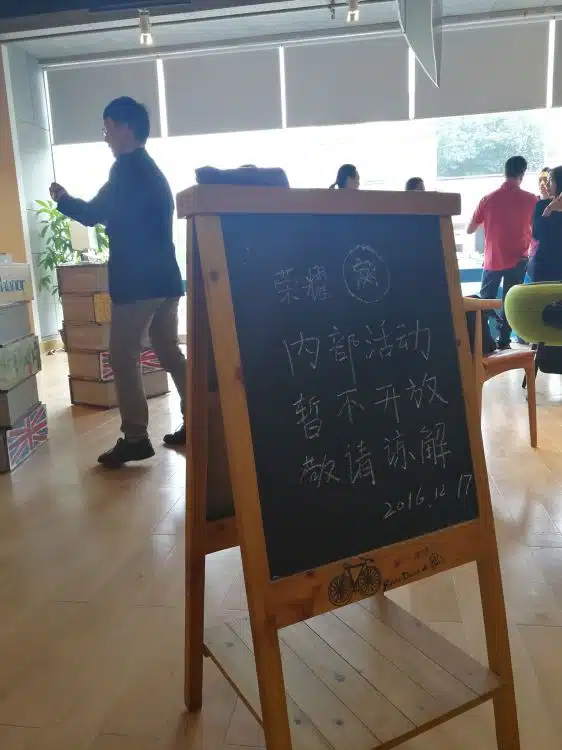 荣耀
内部活动
暂不开放
敬请谅解
2016.12.17